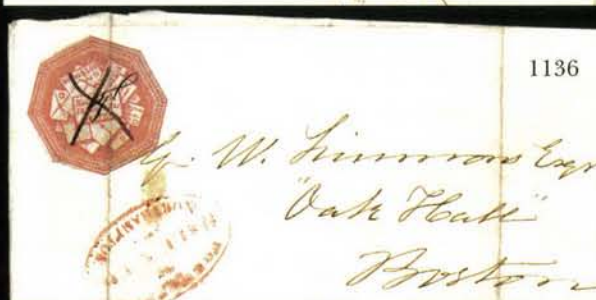 1136
G. W. Simmons Esqr
"Oak Hall"
Boston